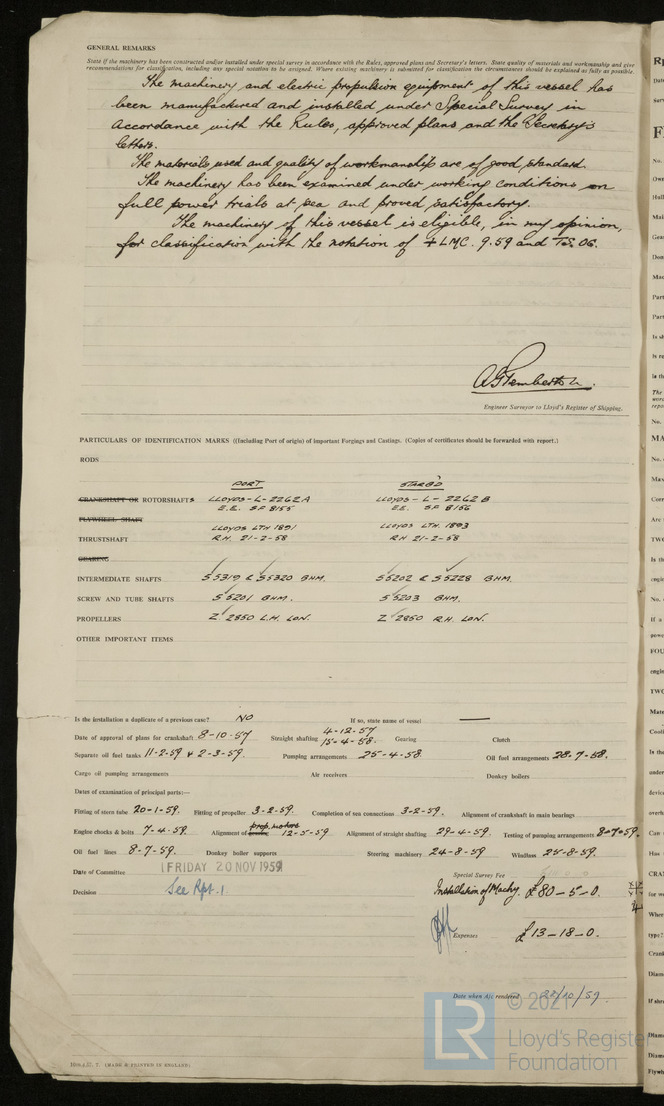 GENERAL REMARKS
State if the machinery has been constructed and/or installed under special survey in accordance with the Rules, approved plans and Secretary's letters. State quality of materials and workmanship and give
recommendations for classification, including any special notation to be assigned. Where existing machinery is submitted for classification the circumstances should be explained as fully as possible.
The machinery and electric propulsion equipment of this vessel has
been manufactured and installed under Special Survey in
accordance with the Rules, approved plans and the Secretary's
letters.
The materials used and quality of workmanship are of good standard.
The machinery has been examined under working conditions on
full power trials at sea and proved satisfactory.
The machinery of this vessel is eligible, in my opinion,
for classification with the notation of + LMC. 9.59 and T.S. OG.
A G Pemberton.
Engineer Surveyor to Lloyd's Register of Shipping.
PARTICULARS OF IDENTIFICATION MARKS ((Including Port of origin) of important Forgings and Castings. (Copies of certificates should be forwarded with report.)
RODS
PORT STARB'D
CRANKSHAFT OR ROTORSHAFTS LLOYDS-L-2262A LLOYDS-L-2262B
E.E. SF 8155 E.E. SF 8156
FLYWHEEL SHAFT
LLOYDS LTH 1891 LLOYDS LTH. 1893
THRUSTSHAFT R.H. 21-2-58 RH 21-2-58
GEARING
INTERMEDIATE SHAFTS S5319 & S5320 BHM. S5202 & S5228 BHM.
SCREW AND TUBE SHAFTS S5201 BHM. S5203 BHM.
PROPELLERS Z 2850 L.H. LON. Z 2850 R.H. LON.
OTHER IMPORTANT ITEMS
Is the installation a duplicate of a previous case? NO If so, state name of vessel —
Date of approval of plans for crankshaft 8-10-57 Straight shafting 4-12-57 15-4-58. Gearing Clutch
Separate oil fuel tanks 11-2-59 & 2-3-59. Pumping arrangements 25-4-58. Oil fuel arrangements 28-7-58.
Cargo oil pumping arrangements Air receivers Donkey boilers
Dates of examination of principal parts:—
Fitting of stern tube 20-1-59. Fitting of propeller 3-2-59. Completion of sea connections 3-2-59. Alignment of crankshaft in main bearings
Engine chocks & bolts 7-4-59. Alignment of prop. motors 12-5-59 Alignment of straight shafting 29-4-59. Testing of pumping arrangements 8-7-59.
Oil fuel lines 8-7-59. Donkey boiler supports Steering machinery 24-8-59 Windlass 25-8-59.
Date of Committee FRIDAY 20 NOV 1959 Special Survey Fee
Decision See Rpt. 1 Installation of Machy. £80-5-0.
Expenses £13-18-0.
Date when A/c rendered 22/10/59.
(MADE & PRINTED IN ENGLAND)
© 2021
LR
Lloyd's Register
Foundation